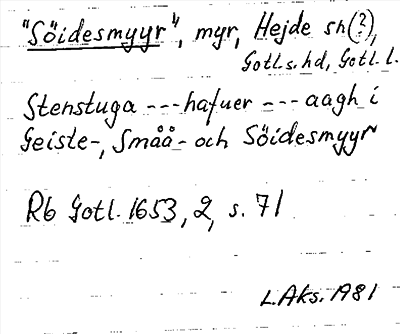 "Söidesmyyr", myr, Hejde sn(?),
Gotl. s. hd, Gotl. l.
Stenstuga --- hafuer --- aagh i
Geiste-, Småå- och Söidesmyyr
Rb Gotl. 1653, 2, s. 71
L. Aks. 1981